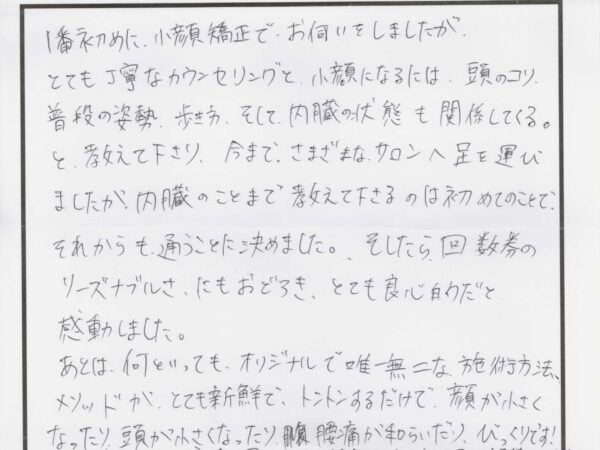 1番初めに、小顔矯正で、お伺いをしましたが、
とても丁寧なカウンセリングと、小顔になるには、頭のコリ、
普段の姿勢、歩き方、そして、内臓の状態も関係してくる。
と、教えて下さり、今まで、さまざまなサロンへ足を運び
ましたが、内臓のことまで教えて下さるのは初めてのことで、
それからも、通うことに決めました。そしたら、回数券の
リーズナブルさ、にもおどろき、とても良心的だと
感動しました。
あとは、何といっても、オリジナルで唯一無二な施術方法、
メソッドが、とても新鮮で、トントンするだけで、顔が小さく
なったり、頭が小さくなったり、腰痛が和らいだり、びっくりです!